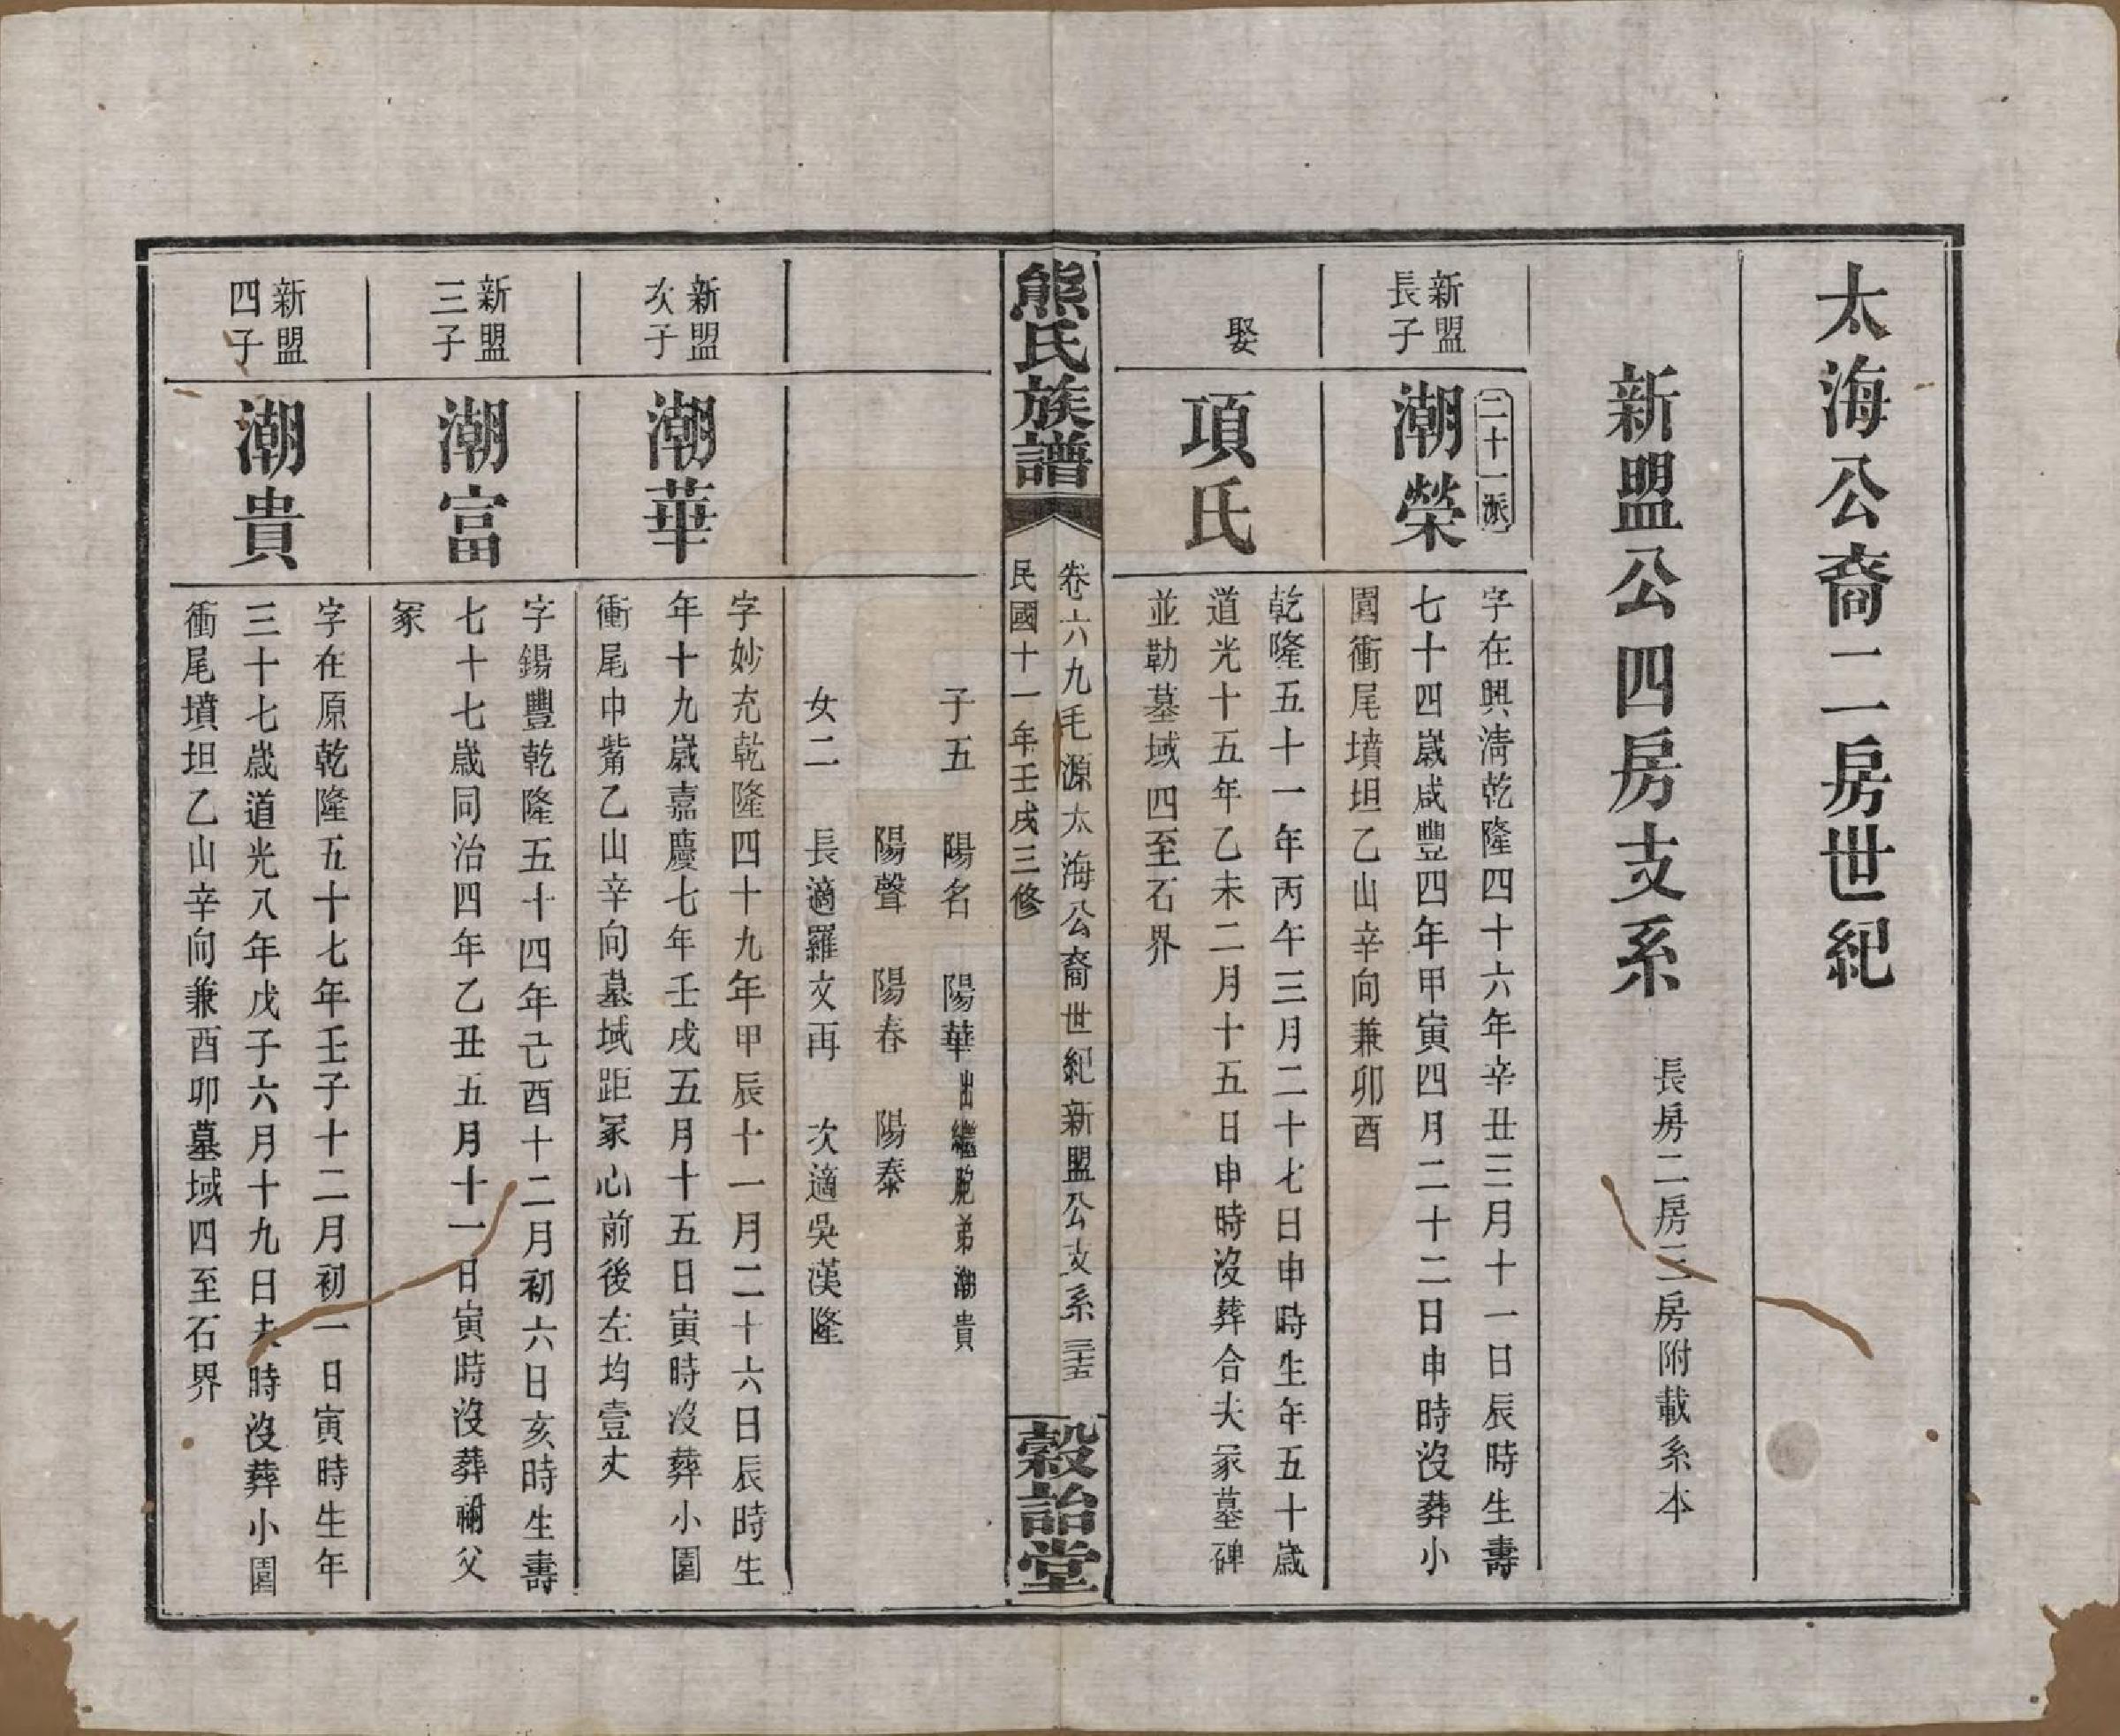 太海公裔二房世紀
新盟公四房支系 長房二房三房附載系本
新盟
長子
二十一派
潮榮
字在興清乾隆四十六年辛丑三月十一日辰時生壽
七十四歲咸豐四年甲寅四月二十二日申時沒葬小
園衝尾墳坦乙山辛向兼卯酉
娶
項氏
乾隆五十一年丙午三月二十七日申時生年五十歲
道光十五年乙未二月十五日申時沒葬合夫冢墓碑
並勒墓域四至石界
熊氏族譜
卷六九毛源太海公裔世紀新盟公支系 三十五
民國十一年壬戌三修
穀詒堂
子五 陽名 陽華出繼胞弟潮貴
陽聲 陽春 陽泰
女二 長適羅文再 次適吳漢隆
新盟
次子
潮華
字妙充乾隆四十九年甲辰十一月二十六日辰時生
年十九歲嘉慶七年壬戌五月十五日寅時沒葬小園
衝尾中觜乙山辛向墓域距冢心前後左均壹丈
新盟
三子
潮富
字錫豐乾隆五十四年己酉十二月初六日亥時生壽
七十七歲同治四年乙丑五月十一日寅時沒葬祔父
冢
新盟
四子
潮貴
字在原乾隆五十七年壬子十二月初一日寅時生年
三十七歲道光八年戊子六月十九日未時沒葬小園
衝尾墳坦乙山辛向兼酉卯墓域四至石界